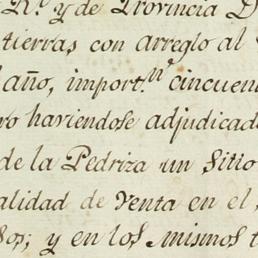 R.^s y de Provincia D
tierras con arreglo al
año, import.^n cincuen
ro haviendose adjudicad
de la Pedriza un Sitio
alidad de Venta en el
os; y en los mismos t